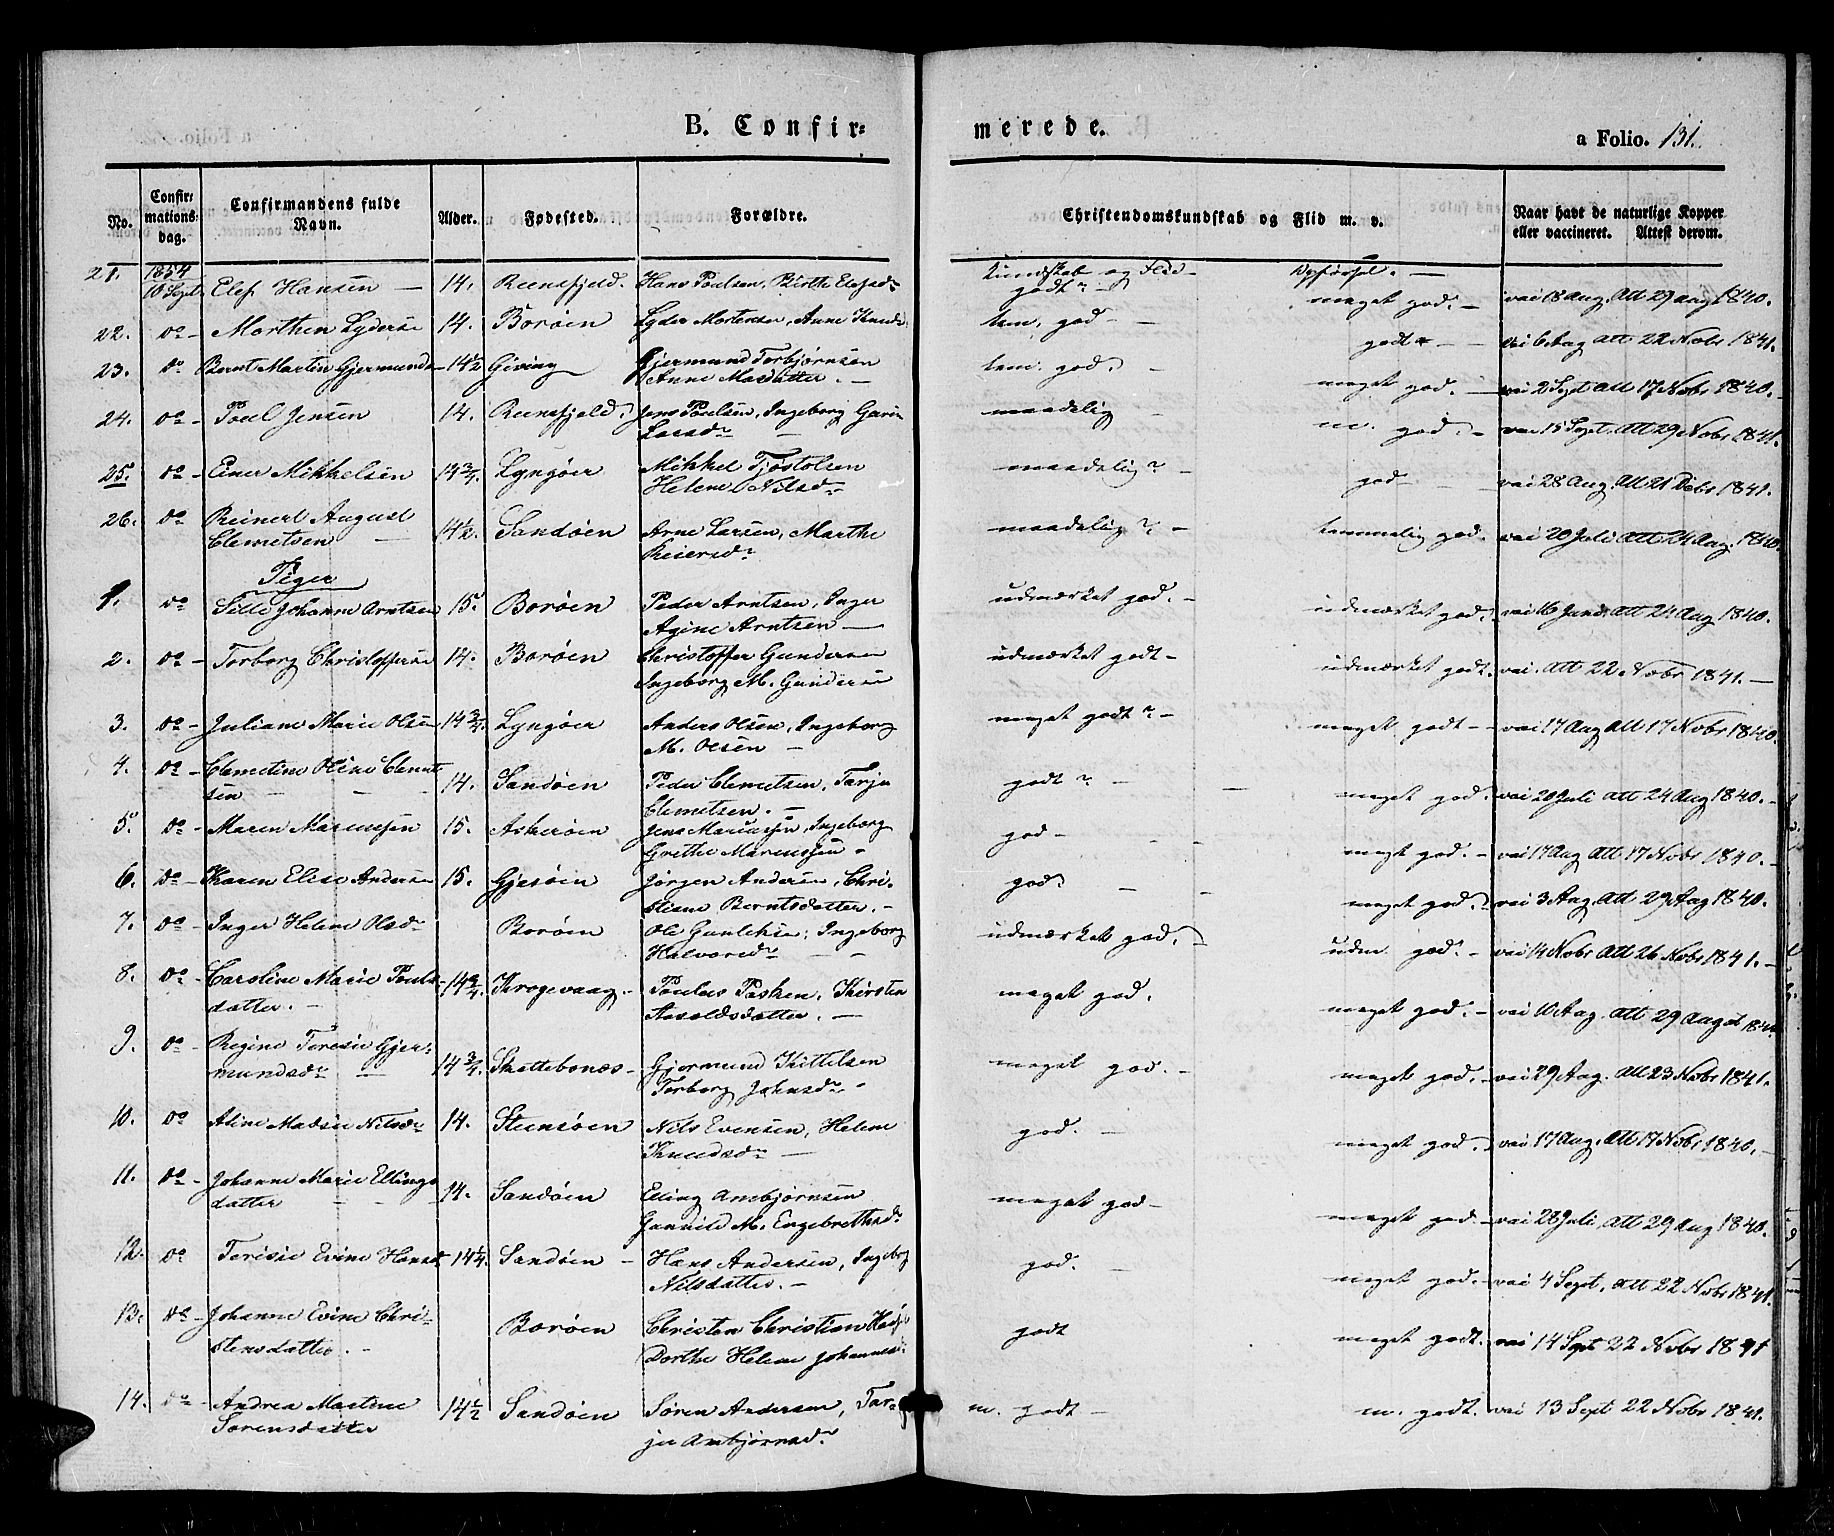 B. Confirmerede. a Folio. 131.
No. Confirmations-dag. Confirmandens fulde Navn. Alder. Fødested. Forældre. Christendomskundskab og Flid m. v. Naar havt de naturlige Kopper eller vaccineret. Attest derom.
Kundskab og Flid - Opførsel. -
21. 1854 10 Sept. Elef Hansen - 14. Reensfjeld. Hans Poulsen, Birthe Elefsdr godt? - meget god. - vai 18 Aug. att 29 aug 1840.
22. do - Morthen Lyderse 14. Borøen Lyder Mortensen, Anne Knudsd. tem. god - godt - vai 6 Aug att 22 Nobr 1841.
23. do Bernt Martin Gjermunds 14½ Giving Gjermund Torbjørnsen
Anne Masdatter. - tem. god. meget god. - vai 2 Sept att 17 Nobr 1840. -
24. do - Poul Jensen 14. Reensfjeld. Jens Poulsen, Ingeborg Gurin
Larsdr - maadelig - m. god. - vai 15 Sept. att 29 Nobr 1841.
25. do - Einer Mikkelsen 14¾. Lyngøer Mikkel Tjøstolsen
Helene Nilsdr maadelig? - god - vai 28 Aug. att 21 Debr 1841.
26. do Reinert August
Clemetsen - 14½. Sandøen Arne Larsen, Marthe
Reiersdr maadelig? - temmelig god. vai 20 Juli att 24 Aug. 1840.
Piger
1. do Sille Johanne Arntsen 15. Borøen Peder Arntsen, Inger
Agine Arntsen - udmærket god. - udmærket god. vai 16 Juni. att 24 Aug 1840.
2. do - Torborg Christoffersen 14. Borøen Christoffer Gundersen
Ingeborg M. Gundersen udmærket godt - udmærket godt. vai. att 22 Nobr 1841. -
3. do - Juliane Marie Olsen 14¾. Lyngøer Anders Olsen, Ingeborg
M. Olsen - meget godt? - meget godt - vai 17 Aug att 17 Nobr 1840.
4. do - Clemetine Oline Clemet
sen - - 14. Sandøen Peder Clemetsen, Tarju
Clemetsen. - godt? - - meget god. vai 20 Juli att 24 Aug 1840. -
5. do - Maren Marcussen 15. Askerøen Jens Marcussen, Ingeborg
Grethe Marcussen - god - - - meget god. - vai 17 Aug att 17 Nobr 1840. -
6. do - Karen Elise Andersen 15. Gjesøen Jørgen Andersen, Chri-
stiane Berntsdatter. - god. - - meget god. - vai 3 Aug. att 29 Aug 1840.
7. do - Inger Helene Olsdr Borøen Ole Gunleksen, Ingeborg
Halvorsdr - - udmærket god. udm. god. - vai 14 Nobr att 26 Nobr 1841. -
8. do - Caroline Marie Pouls-
datter. - 14¾. Krogevaag - Poulus Poulsen, Kirsten
Aasoldsdatter. - meget god. meget god. - vai 10 Aug. att 29 Aug 1840.
9. do - Regine Teresie Gjer-
mundsdr - 14¾. Skottebonæs - Gjermund Kittelsen
Torborg Johnsdr - meget god. - meget god. - vai 29 Aug. att 23 Nobr 1841.
10. do Aline Madsie Nilsdr 14. Steensøen Nils Evensen, Helene
Knudsdr - god. - meget god. vai 17 Aug. att 17 Nobr 1840. -
11. do - Johanne Marie Ellings
datter - - 14. Sandøen Elling Ansbjørnsen
Gunnild M. Engebretsdr. meget god - meget god. - vai 28 Juli. att 29 Aug 1840.
12. do Terisie Evine Hansd. 14¼. Sandøen - Hans Andersen, Ingeborg
Nilsdatter. - god. meget god. - vai 4 Sept. att 22 Nobr 1841.
13. do - Johanne Evine Chri-
stensdatter. - Borøen Christen Christian
Dorthe Helene Johannesd. godt meget godt. vai 14 Sept 22 Nobr 1841
14. do - Andrea Martine
Sørensdatter 14½ Sandøen Søren Andersen, Tar-
ju Ansbjørnsdr m. godt - m. godt. vai 13 Sept 22 Nobr 1841.